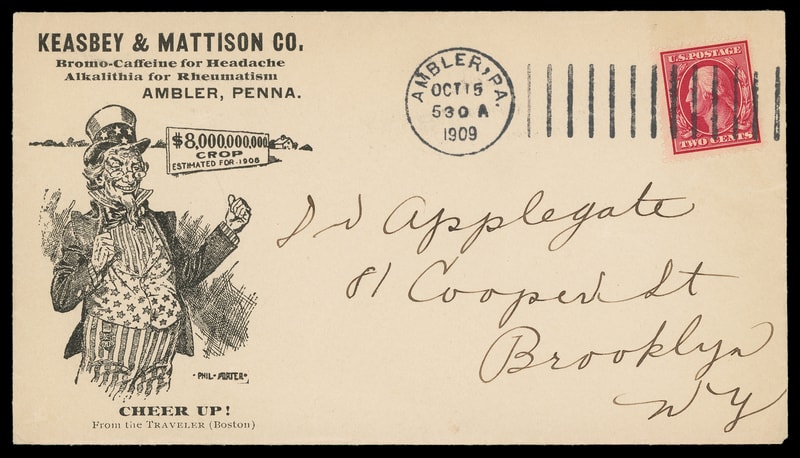 KEASBEY & MATTISON CO.
Bromo-Caffeine for Headache
Alkalithia for Rheumatism
AMBLER, PENNA.
$8,000,000,000
CROP
ESTIMATED FOR 1908
PHIL PORTER
CHEER UP!
From the TRAVELER (Boston)
AMBLER, PA.
OCT 15
530 A
1909
U.S. POSTAGE
TWO CENTS
Applegate
81 Cooper St
Brooklyn
NY